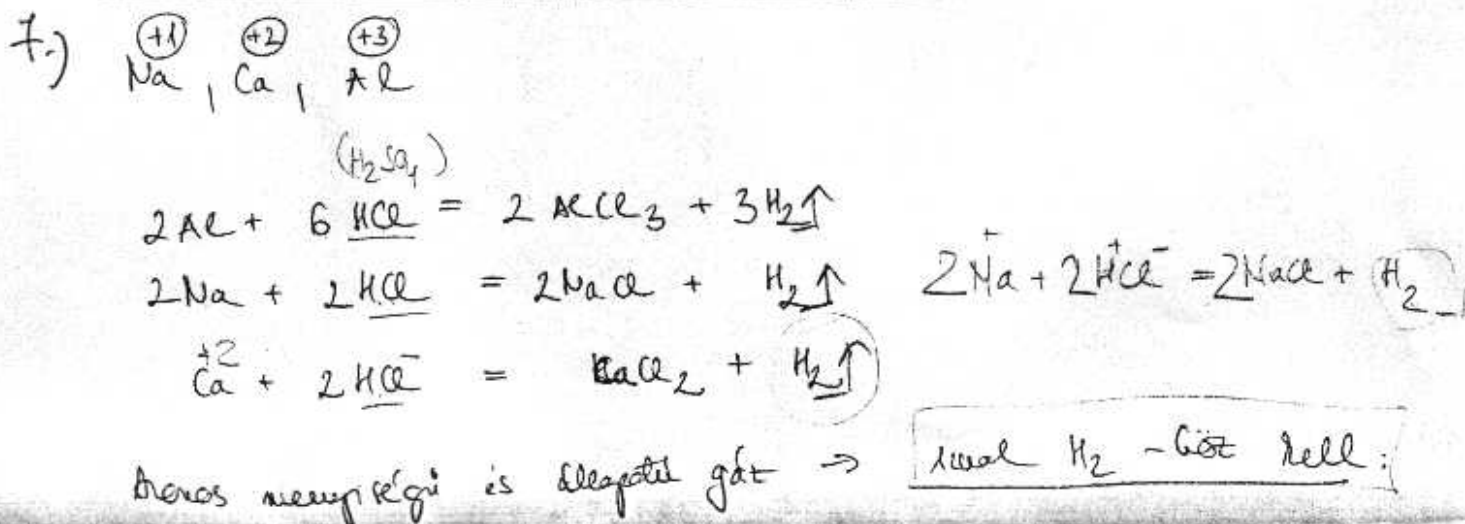 7.) +1 +2 +3
Na, Ca, Al
(H2SO4)
2Al + 6 HCl = 2 AlCl3 + 3H2↑
2Na + 2HCl = 2NaCl + H2↑ 2Na+ + 2H+Cl- = 2NaCl + H2
+2
Ca + 2HCl- = CaCl2 + H2↑
Azonos mennyiségű és állapotú gáz → H2 - kell: